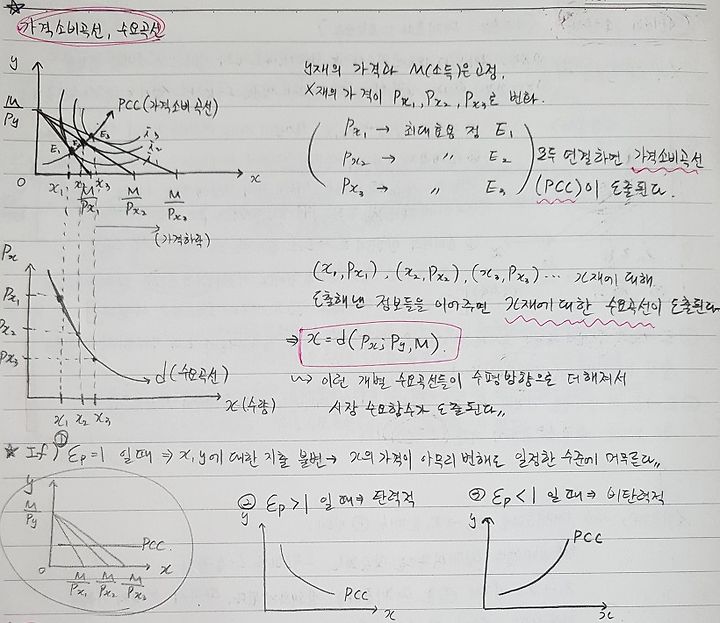 가격소비곡선, 수요곡선
y
M/Py
PCC(가격소비곡선)
E₁ E₂ E₃
i₃
i₂
i₁
0 x₁ x₂ x₃ M/Px₁ M/Px₂ M/Px₃ x
(가격하락)
y재의 가격과 M(소득)은 고정,
X재의 가격이 Px₁, Px₂, Px₃로 변화.
Px₁ → 최대효용 점 E₁
Px₂ → 〃 E₂
Px₃ → 〃 E₃
모두 연결하면 가격소비곡선
(PCC)이 도출된다.
Px
Px₁
Px₂
Px₃
d(수요곡선)
x₁ x₂ x₃ x(수량)
(x₁, Px₁), (x₂, Px₂), (x₃, Px₃) … x재에 대해
도출해낸 점보들을 이어주면 x재에 대한 수요곡선이 도출된다
⇒ x = d(Px; Py, M).
↝ 이런 개별 수요곡선들이 수평방향으로 더해져서
시장 수요함수가 도출된다.,
★ If) ① Ep=1 일때 ⇒ x, y에 대한 지출 불변 → x의 가격이 아무리 변해도 일정한 수준에 머무른다.,
y
M/Py
PCC.
0 M/Px₁ M/Px₂ M/Px₃ x
② Ep>1 일때 ⇒ 탄력적
y
PCC
x
③ Ep<1 일때 ⇒ 비탄력적
y
PCC
x